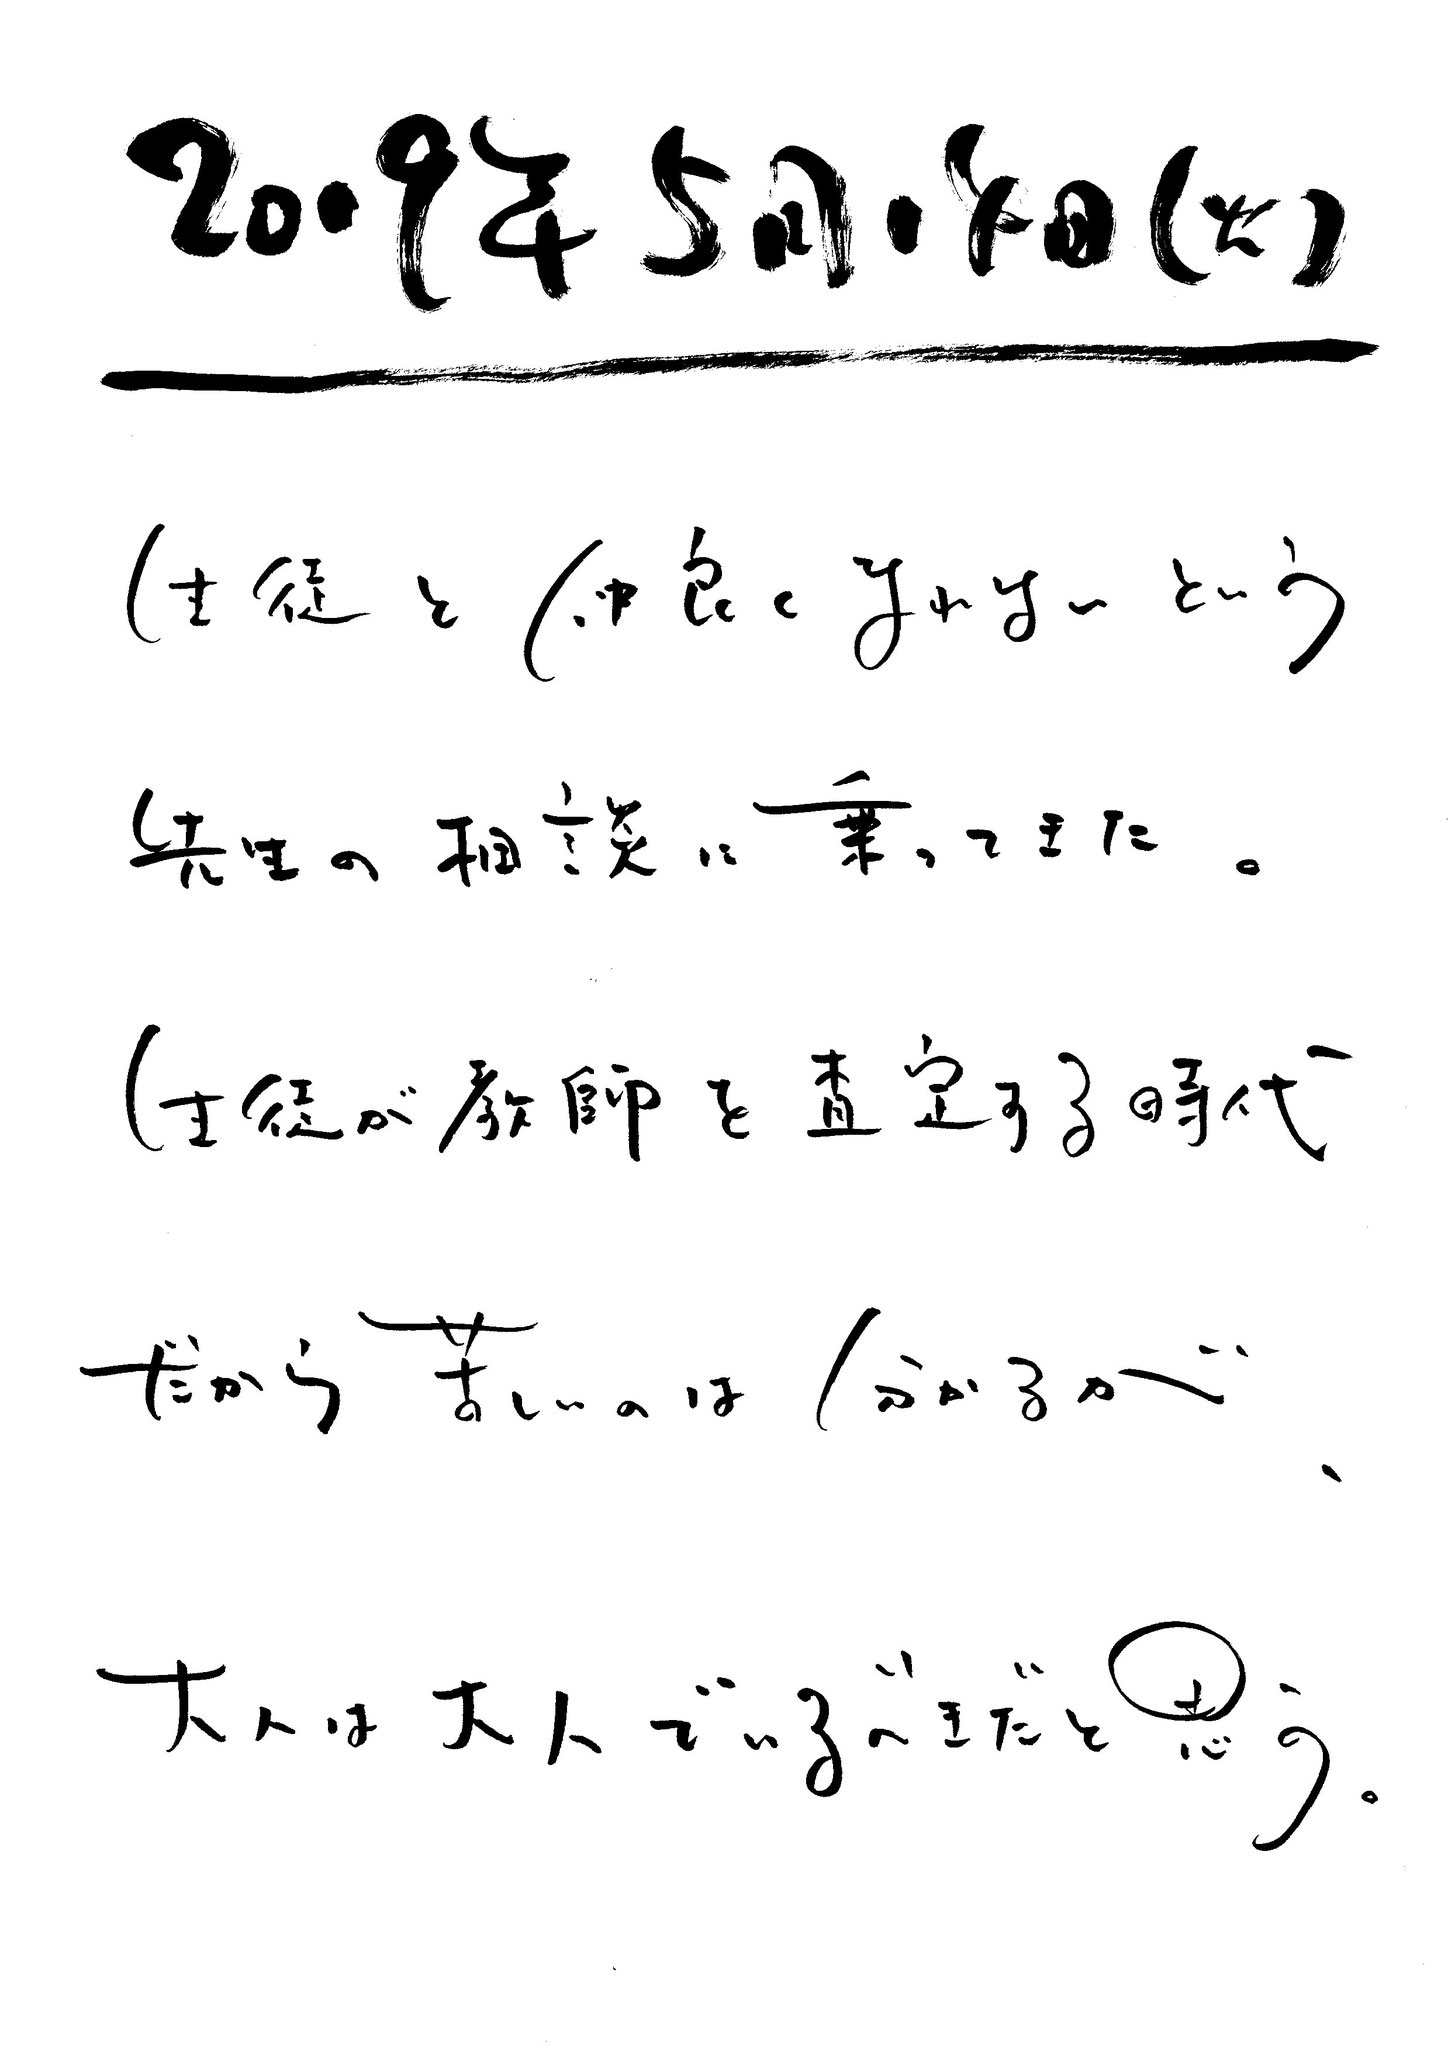 2019年5月14日(火)
生徒と仲良くなれないという
先生の相談に乗ってきた。
生徒が教師を査定する時代
だから苦しいのは分かるが、
大人は大人でいるべきだと思う。